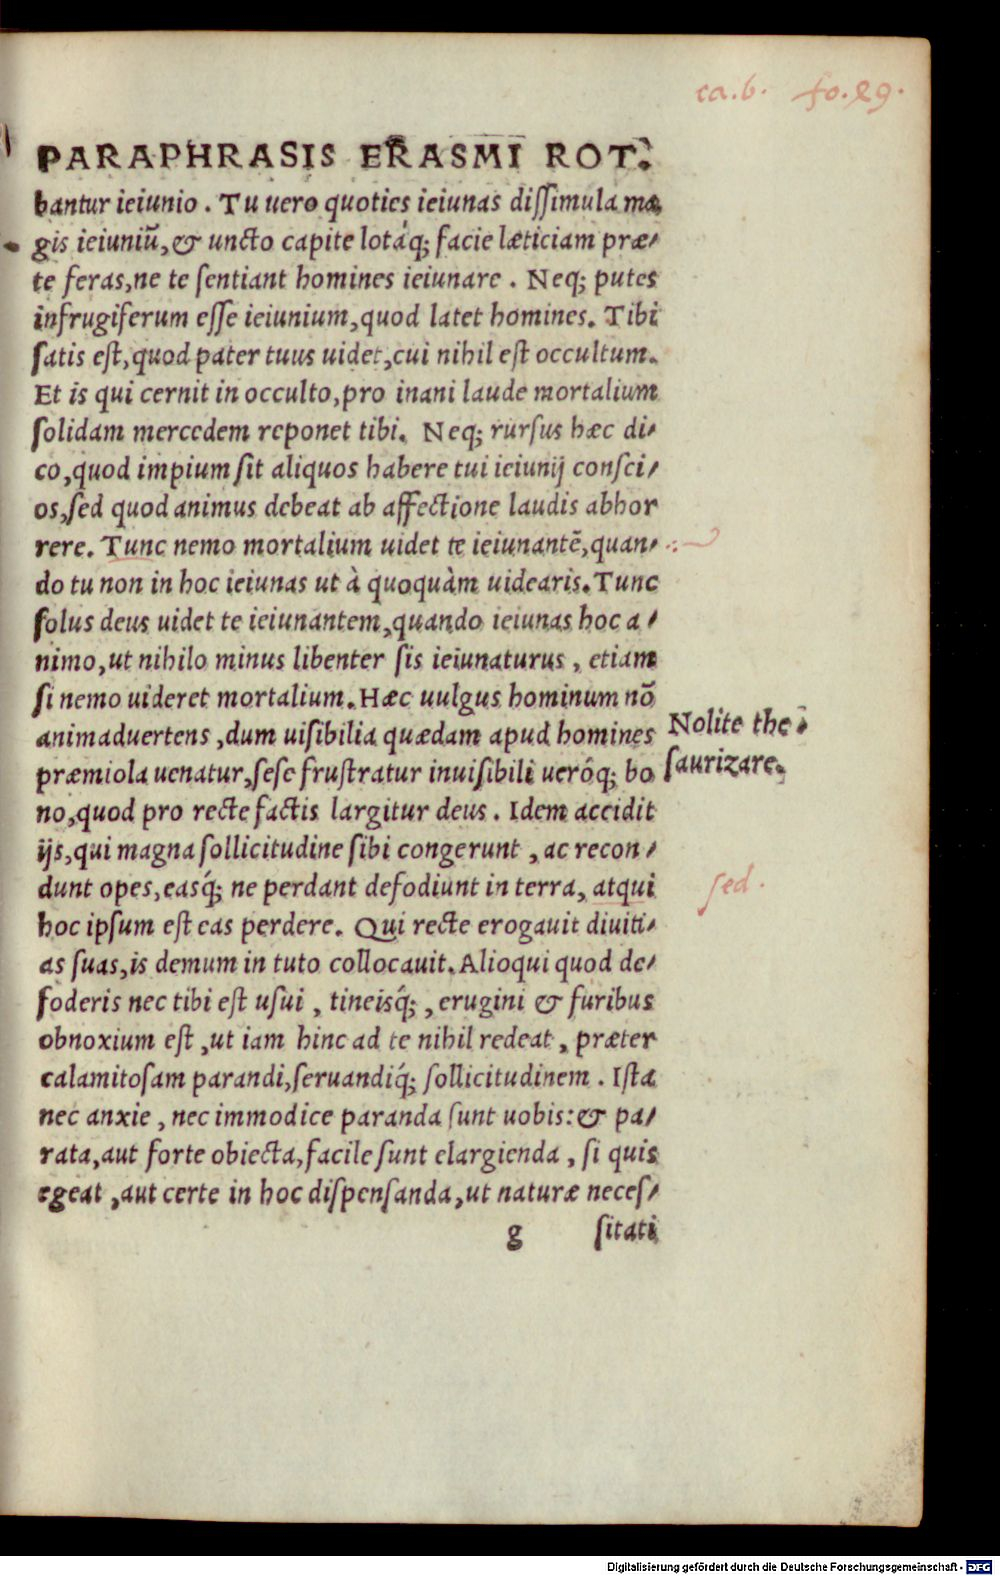 ca.6. fo.29.
PARAPHRASIS ERASMI ROT.
bantur ieiunio . Tu uero quoties ieiunas diſſimula ma,
gis ieiuniũ,& uncto capite lotáq; facie læticiam præ/
te feras,ne te ſentiant homines ieiunare . Neq; putes
infrugiferum eſſe ieiunium,quod latet homines. Tibi
ſatis eſt,quod pater tuus uidet,cui nihil eſt occultum.
Et is qui cernit in occulto,pro inani laude mortalium
ſolidam mercedem reponet tibi. Neq; rurſus hæc di/
co,quod impium ſit aliquos habere tui ieiunij conſci/
os,ſed quod animus debeat ab affectione laudis abhor
rere. Tunc nemo mortalium uidet te ieiunantẽ,quan/
do tu non in hoc ieiunas ut à quoquàm uidearis. Tunc
ſolus deus uidet te ieiunantem,quando ieiunas hoc a /
nimo,ut nihilo minus libenter ſis ieiunaturus , etiam
ſi nemo uideret mortalium. Hæc uulgus hominum nõ
animaduertens ,dum uiſibilia quædam apud homines
præmiola uenatur,ſeſe fruſtratur inuiſibili ueróq; bo
no,quod pro recte factis largitur deus . Idem accidit
ijs,qui magna ſollicitudine ſibi congerunt , ac recon /
dunt opes,easq́; ne perdant defodiunt in terra, atqui
hoc ipſum eſt eas perdere. Qui recte erogauit diuiti/
as ſuas,is demum in tuto collocauit. Alioqui quod de/
foderis nec tibi eſt uſui , tineisq́; , erugini & furibus
obnoxium eſt ,ut iam hinc ad te nihil redeat , præter
calamitoſam parandi,ſeruandiq́; ſollicitudinem . Iſta
nec anxie , nec immodice paranda ſunt uobis: & pa/
rata,aut forte obiecta,facile ſunt elargienda , ſi quis
egeat ,aut certe in hoc diſpenſanda,ut naturæ neceſ/
g ſitati
Nolite the/
ſaurizare.
ſed.
Digitalisierung gefördert durch die Deutsche Forschungsgemeinschaft - DFG